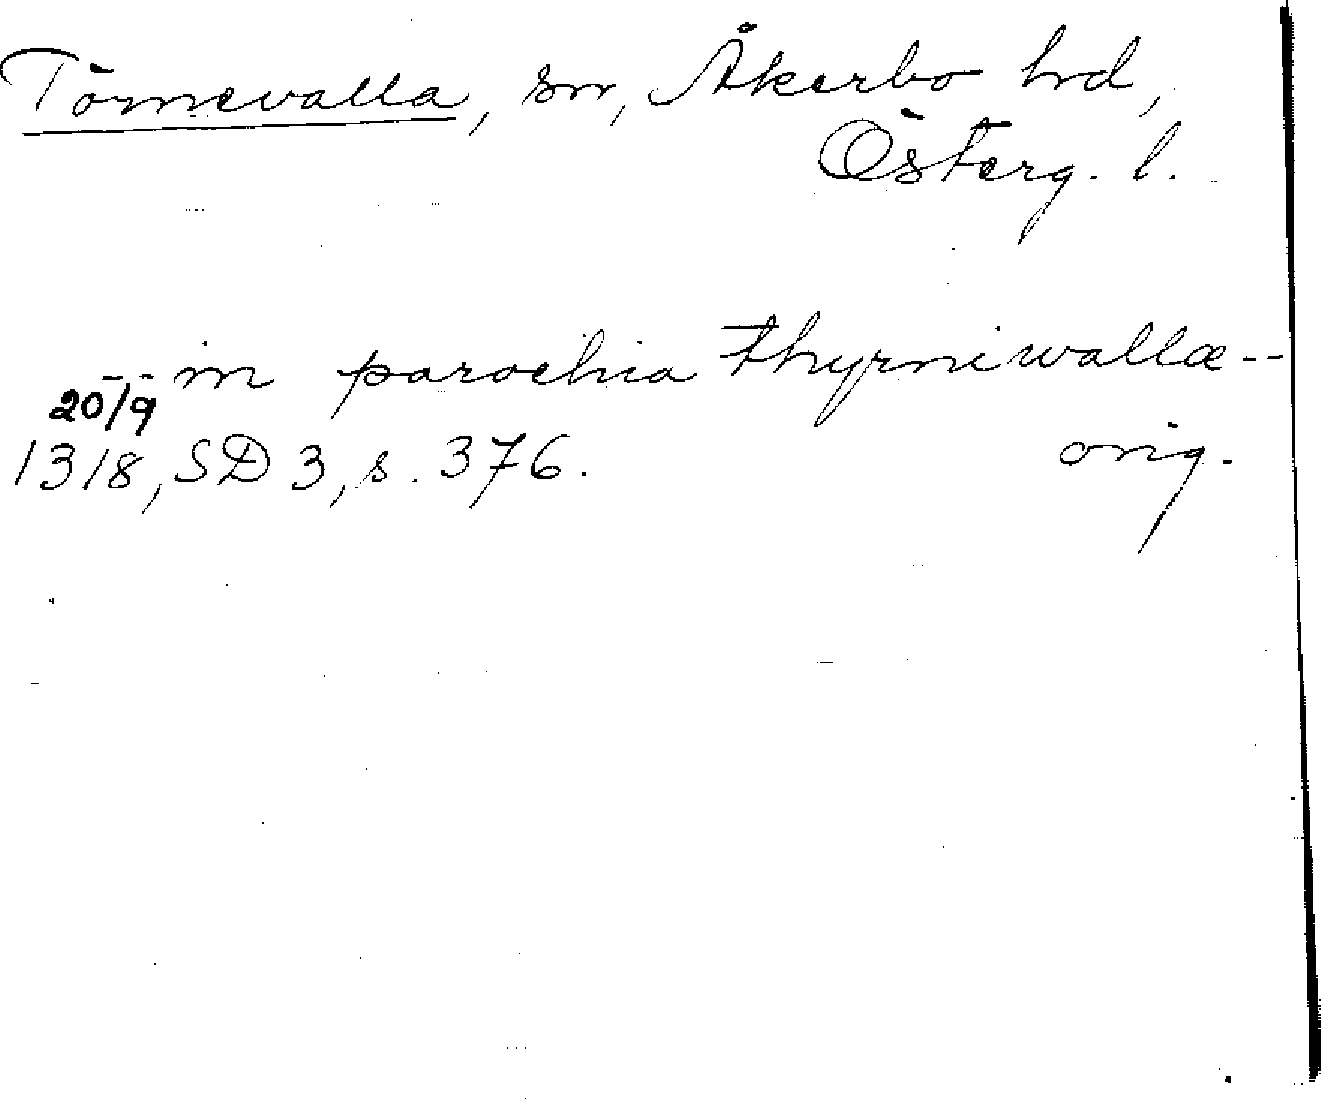 Törnevalla, sn, Åkerbo hd,
Österg. l.
-- in parochia thyrniwallæ --
20/9
1318, SD 3, s. 376. orig.